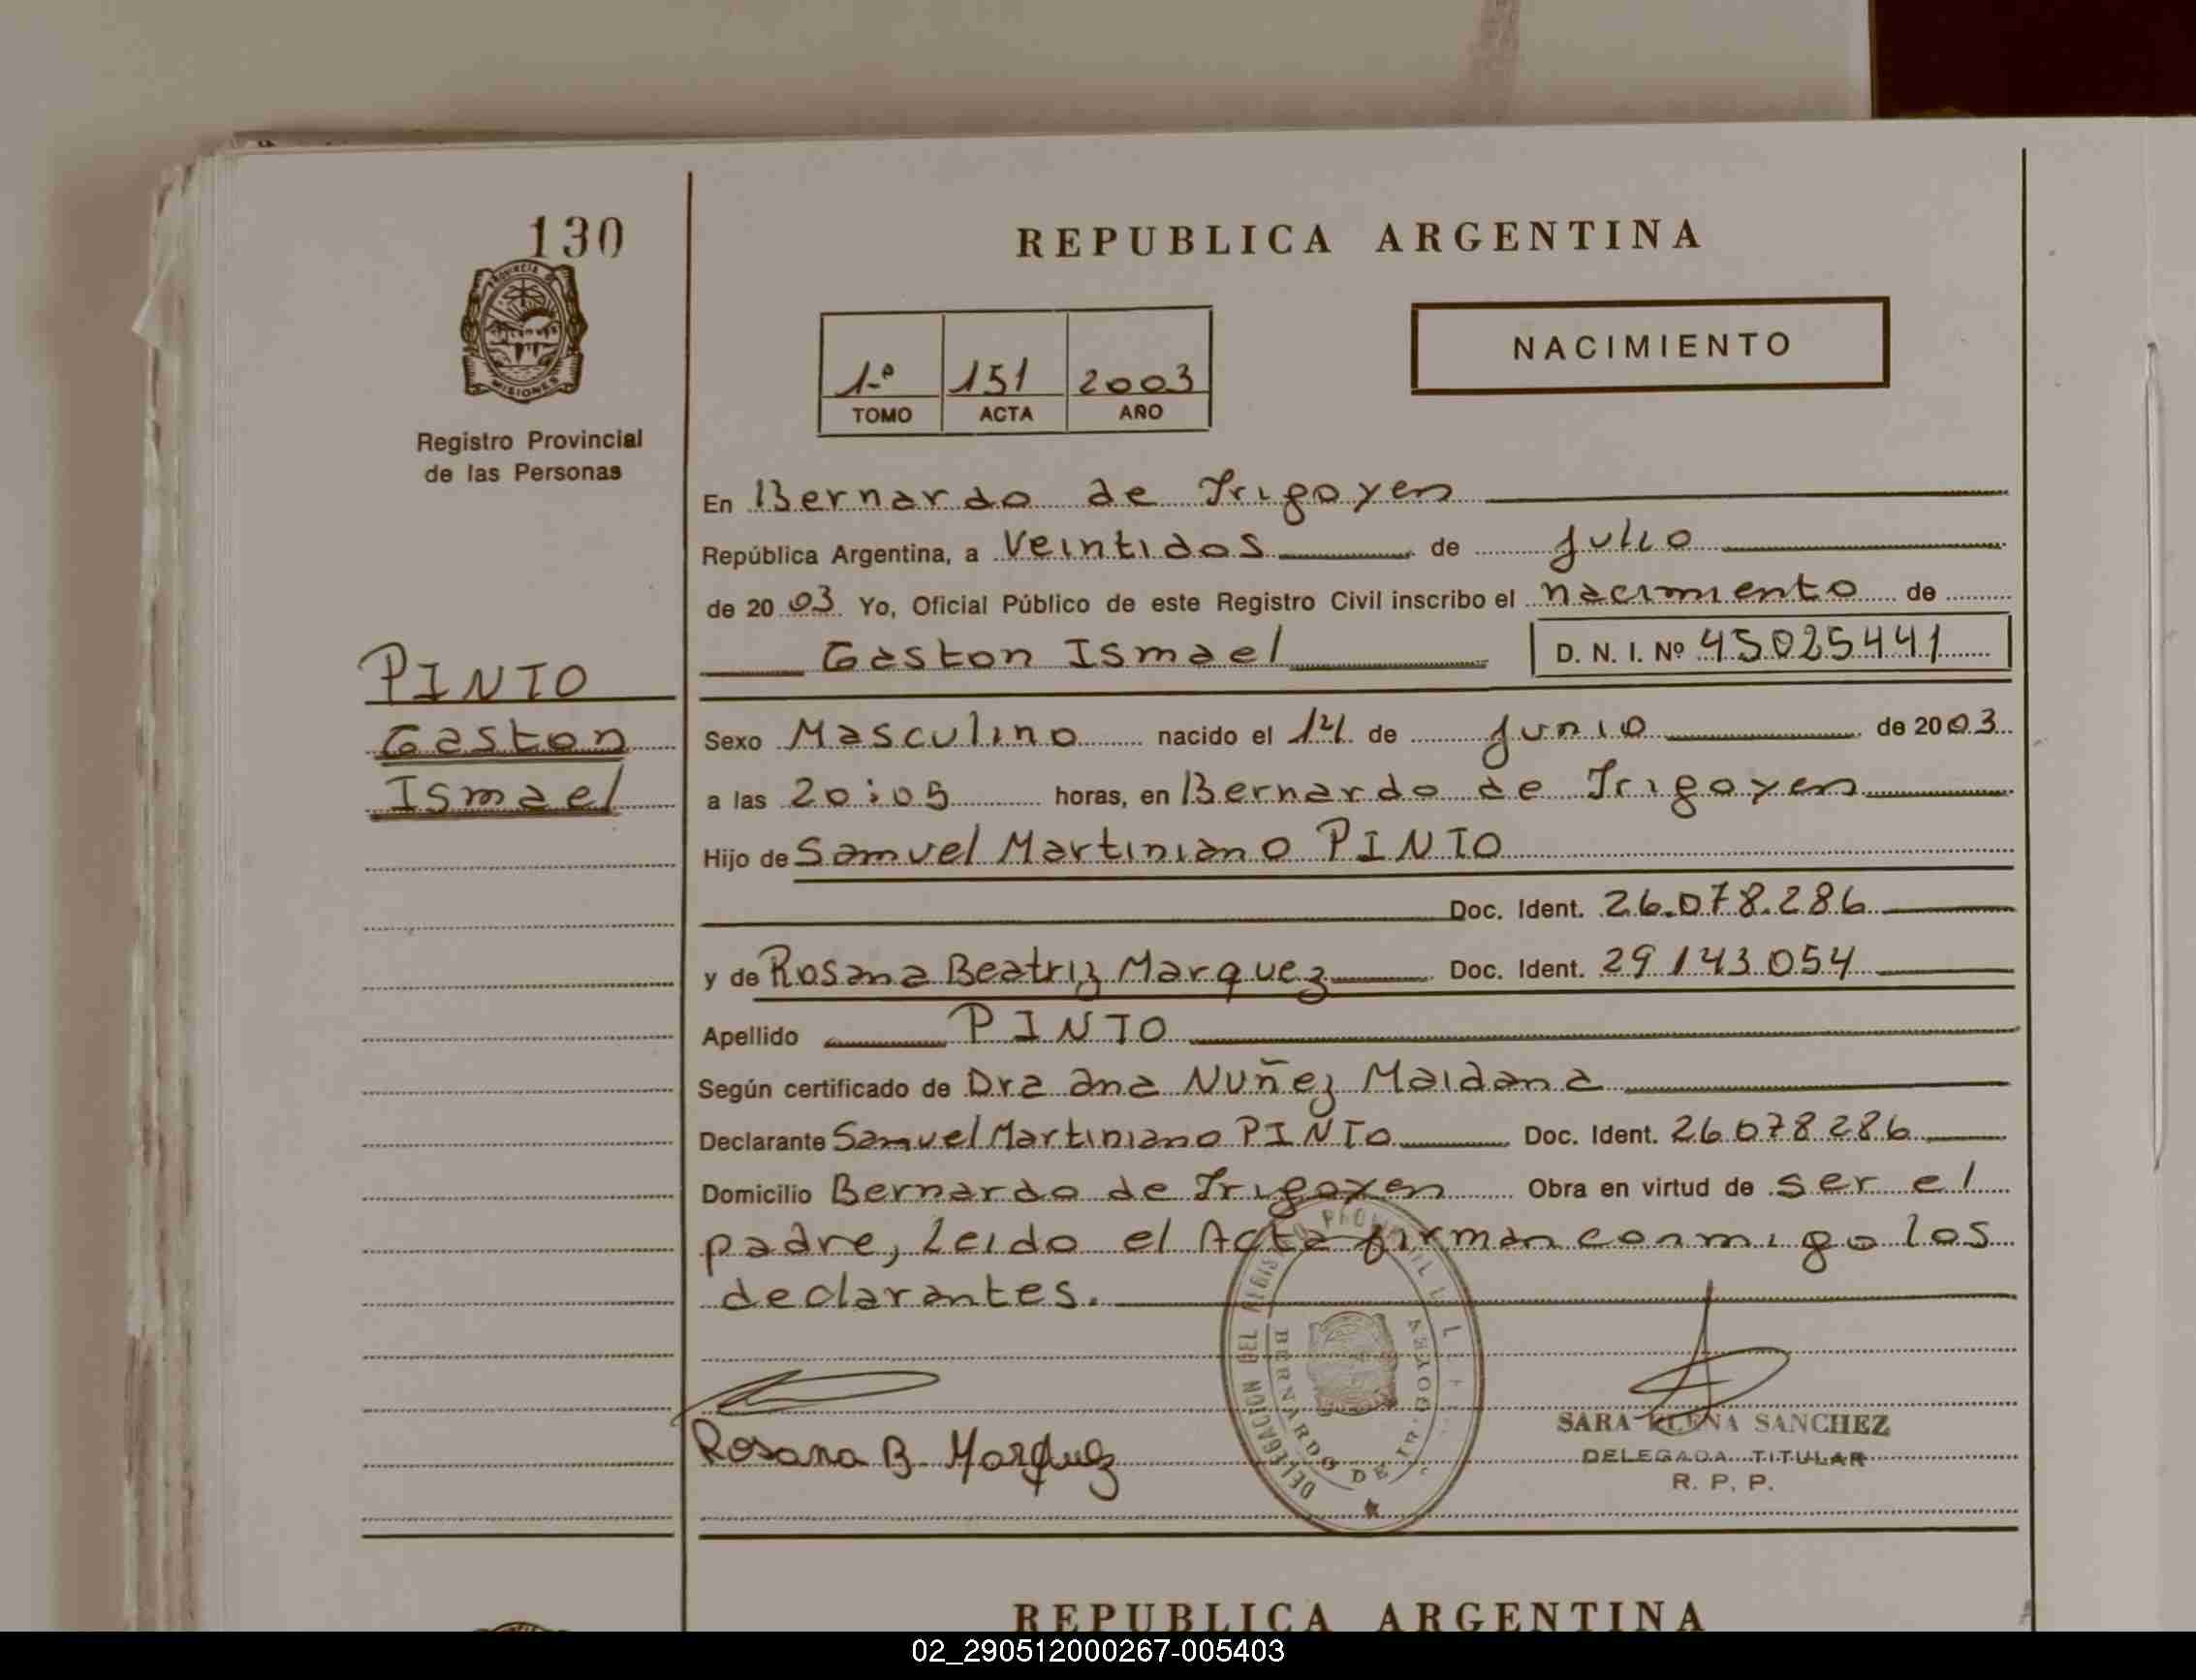 130
PROVINCIA DE
MISIONES
Registro Provincial
de las Personas
PINTO
Gaston
Ismael
REPUBLICA ARGENTINA
1º 151 2003
TOMO ACTA AÑO
NACIMIENTO
En Bernardo de Irigoyen
República Argentina, a Veintidos de Julio
de 2003 Yo, Oficial Público de este Registro Civil inscribo el nacimiento de
Gaston Ismael D. N. I. Nº 45025441
Sexo Masculino nacido el 14 de Junio de 2003
a las 20:05 horas, en Bernardo de Irigoyen
Hijo de Samuel Martiniano PINTO
Doc. Ident. 26.078.286
y de Rosana Beatriz Marquez Doc. Ident. 29143054
Apellido PINTO
Según certificado de Dra Ana Nuñez Maidana
Declarante Samuel Martiniano PINTO Doc. Ident. 26078286
Domicilio Bernardo de Irigoyen Obra en virtud de ser el
padre, Leido el Acta firman conmigo los
declarantes.
DELEGACION DEL
BERNARDO DE
Rosana B. Marquez
SARA ELENA SANCHEZ
DELEGADA TITULAR
R. P. P.
REPUBLICA ARGENTINA
02_290512000267-005403